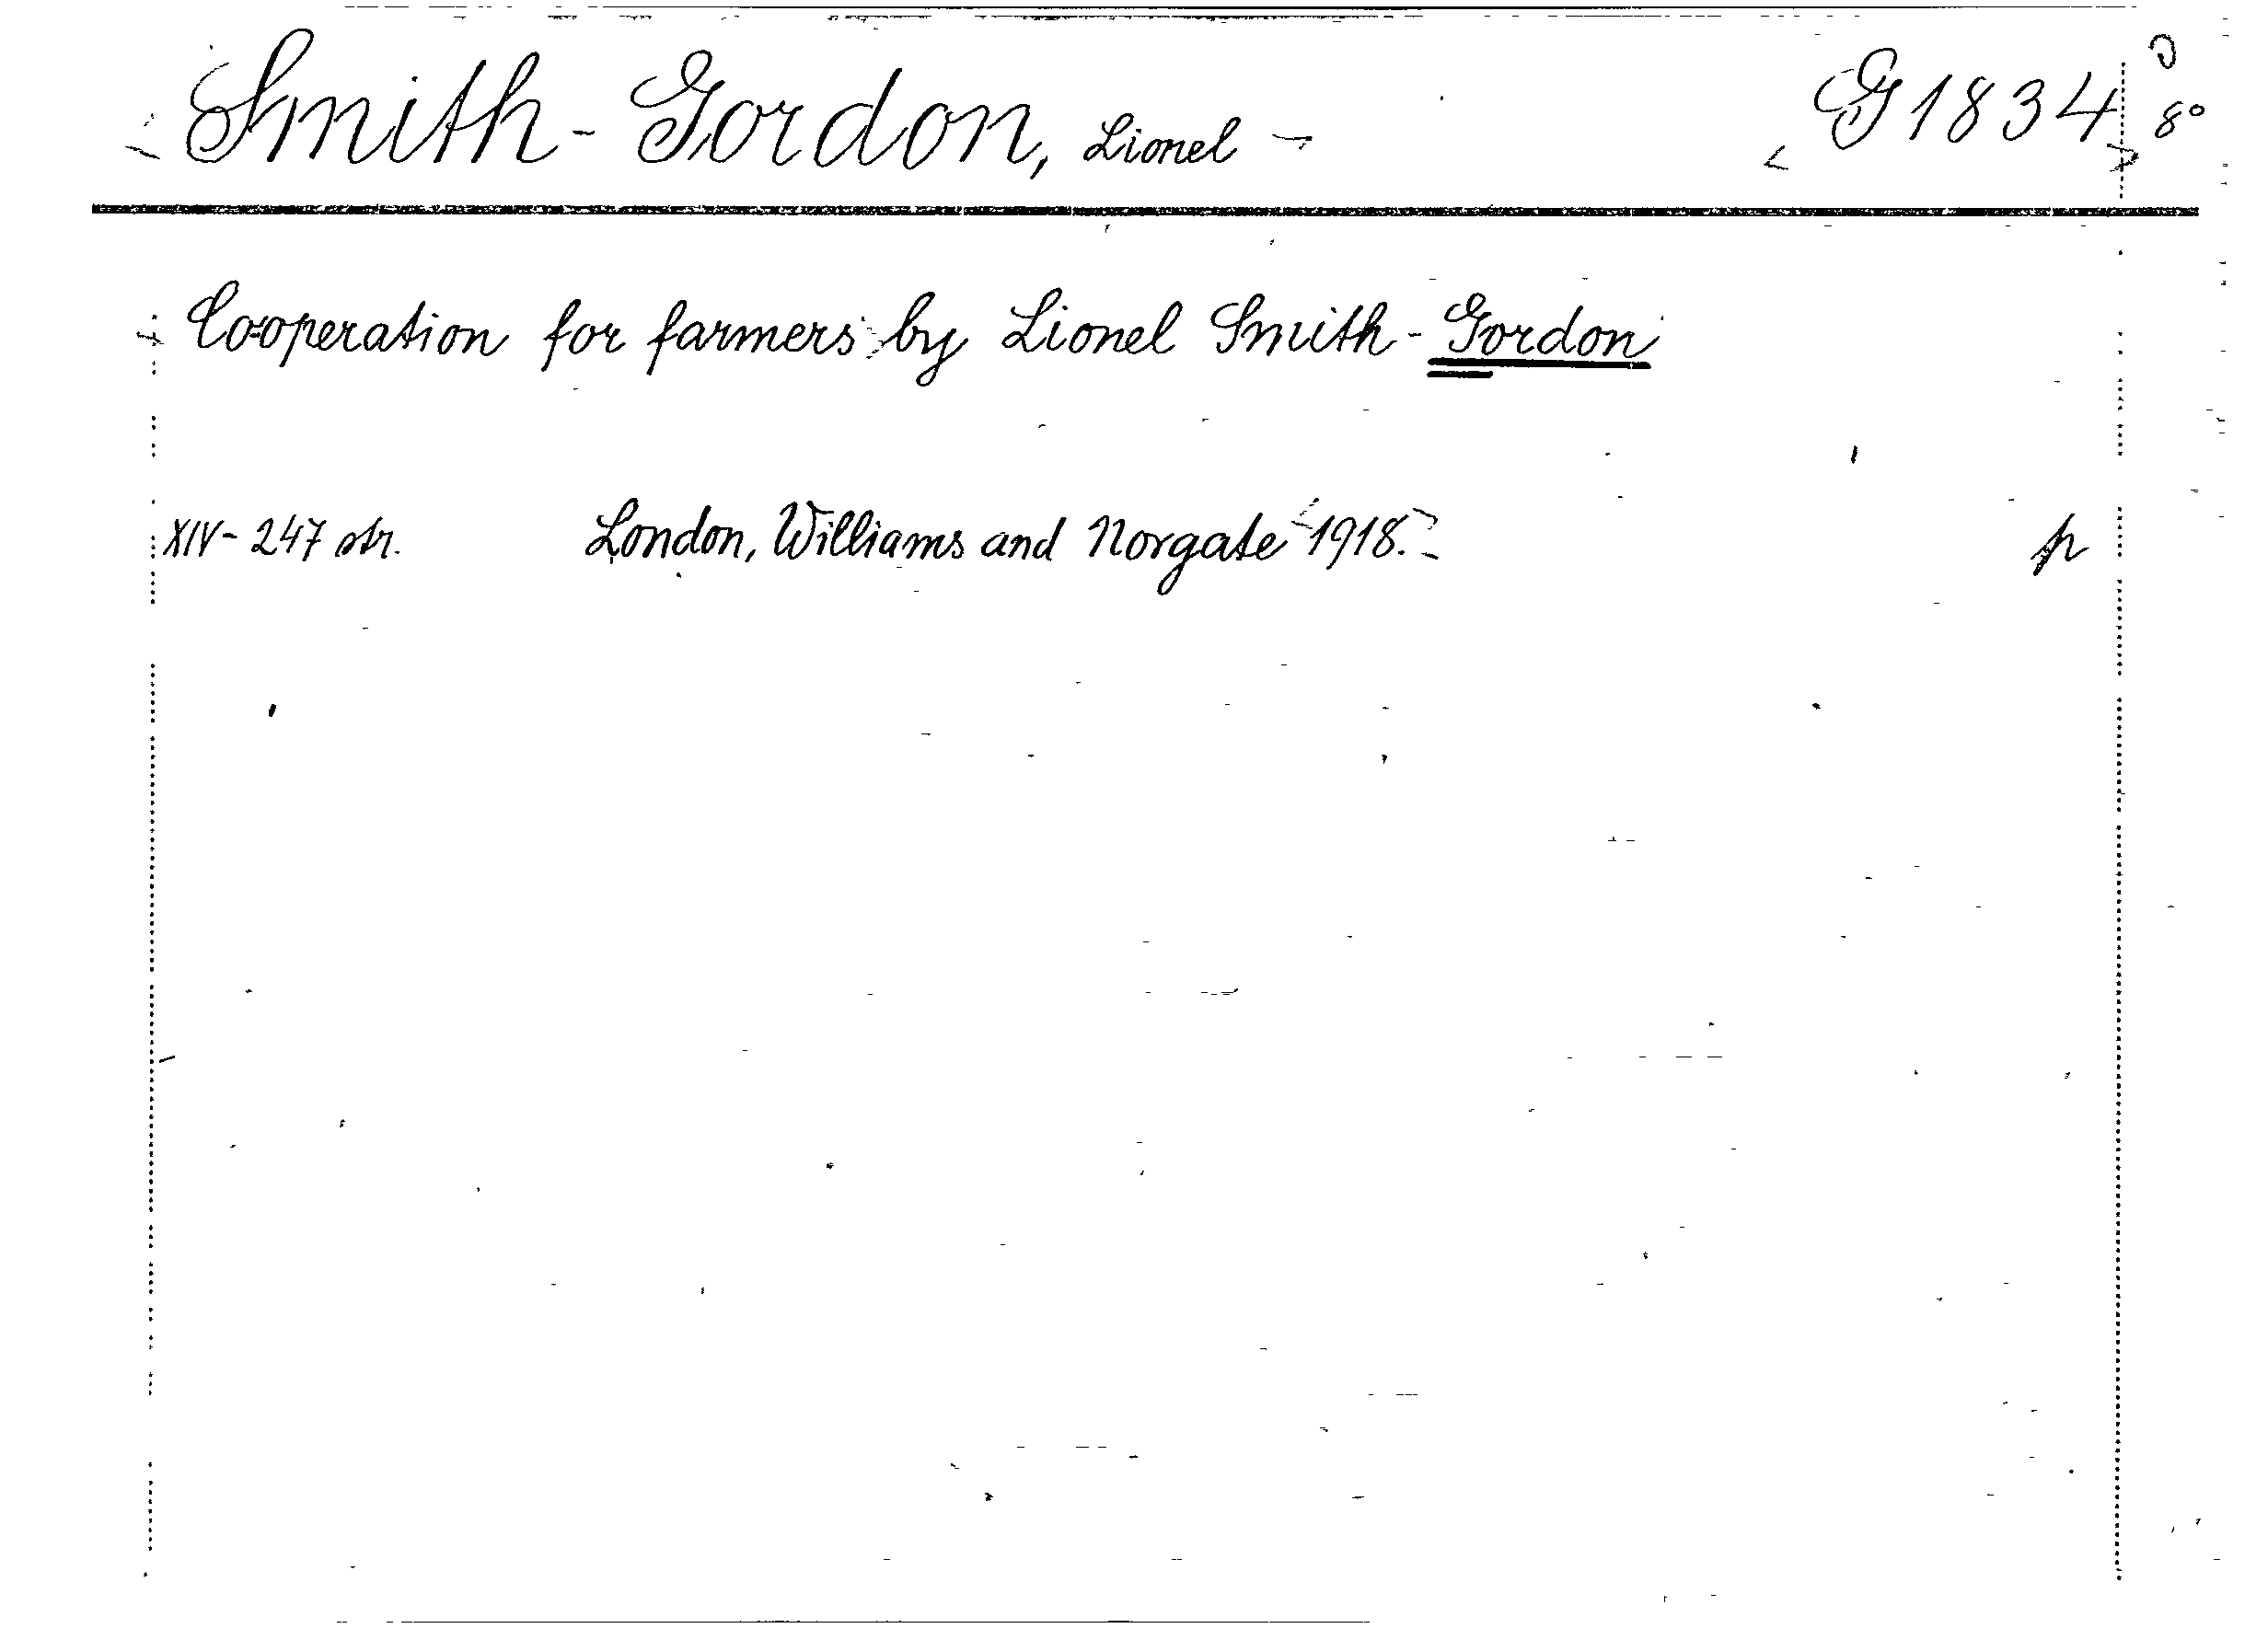 Smith-Gordon, Lionel G 1834 8°
Cooperation for farmers by Lionel Smith-Gordon
XIV-247 str. London, Williams and Norgate 1918. p